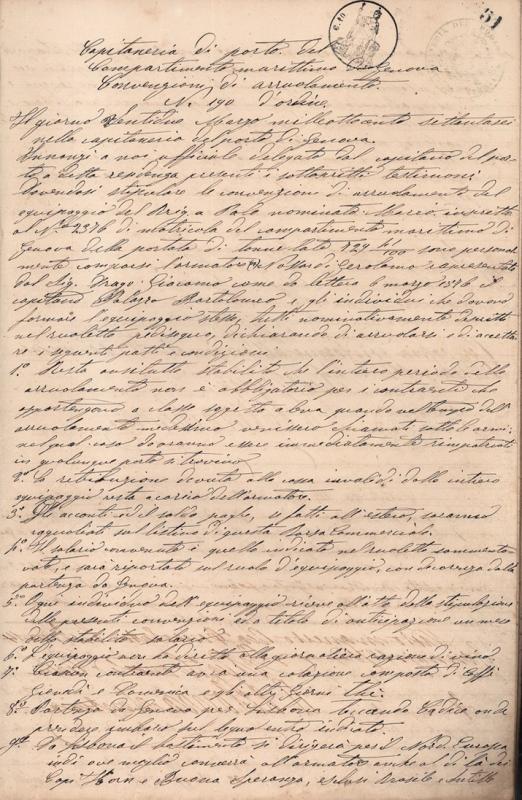 51
Capitaneria di porto del
Compartimento marittimo di Genova
Convenzioni di arruolamento
N. 190 d'ordine
Il giorno Ventidue Marzo milleottocento settantasei
nella capitaneria del porto di Genova.
Innanzi a noi ufficiale delegato dal capitano del por
to a detta residenza presenti di sottoscritti testimoni
Dovendosi stipulare le convenzioni di arruolamento del
equipaggio del Brig. a Palo nominato Marco inscritto
al N. 2376 di matricola del compartimento marittimo di
Genova della portata di tonnellate 829 /100 sono personal
mente comparsi l'armatore di Gerolamo rapresentato
dal Sig. Drago Giacomo come da lettera 6 marzo 1876 il
capitano Bartolomeo e gli individui che devono
formare l'equipaggio stesso, tutti nominativamente descritti
nel ruoletto pedissequo, dichiarando di arruolarsi e di accetta
re i seguenti patti e condizioni
1.° Resta anzitutto stabilito che l'intero periodo dello
arruolamento non è obbligatorio per i contraenti che
appartengono a classe sogetta a leva quando nel tempo dell'
arruolamento medesimo venissero chiamati sotto le armi,
nel qual caso dovranno essere immediatamente rimpatriati
in qualunque porto si trovino
2.° La retribuzione dovuta alla cassa invalidi dallo intiero
equipaggio resta a carico dell'armatore.
3.° Gli acconti ed il saldo paghe, se fatti all'estero, saranno
ragguagliati sul listino di questa Borsa Commerciale.
4.° Il salario convenuto è quello indicato nel ruoletto sommento
vato, e sarà riportato sul ruolo d'equipaggio, con decorrenza dalla
partenza da Genova.
5.° Ogni individuo dell'equipaggio riceve all'atto della stipulazione
delle presenti convenzioni ed a titolo di anticipazione un mese
dello stabilito salario
6.° L'equipaggio avrà diritto alla giornaliera razione di vino.
7.° Ciascun contraente avrà una colazione composta di Caffè
Giovedì e Domenica e gli altri giorni thè.
8.° Partenza da Genova per Lisbona toccando Cadice onde
prendere
9.° Da Lisbona il bastimento si dirigerà per il Nord Europa
indi ove meglio converrà all'armatore anche al di là dei
Capi Horn e Buona Speranza, esclusi Brasile e Antille